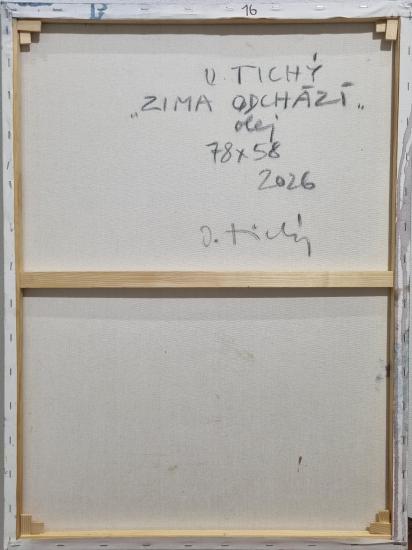 16
O. TICHÝ
„ZIMA ODCHÁZÍ„
olej
78x58
2026
O. Tichý